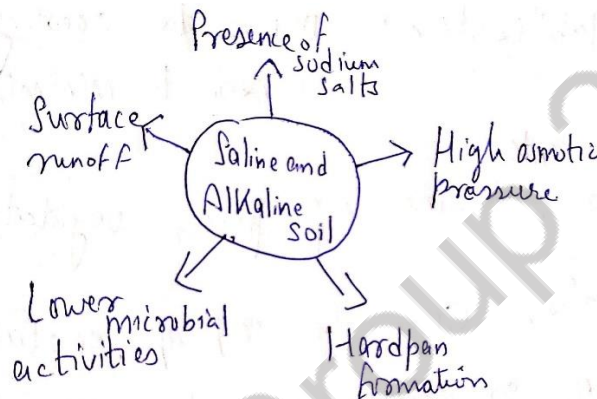 Presence of
sodium
salts
Surface
runoff
Saline and
Alkaline
soil
High osmotic
pressure
Lower
microbial
activities
Hardpan
formation